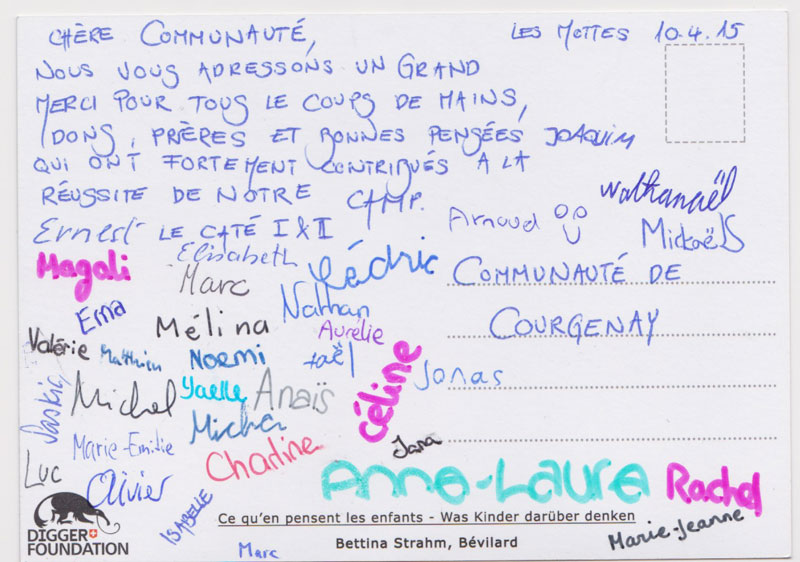 CHÈRE COMMUNAUTÉ,
LES MOTTES 10.4.15
NOUS VOUS ADRESSONS UN GRAND
MERCI POUR TOUS LE COUPS DE MAINS,
DONS, PRIÈRES ET BONNES PENSÉES
QUI ONT FORTEMENT CONTRIBUÉS A LA
RÉUSSITE DE NOTRE CAMP.
LE CATÉ I & II
JOAQUIM
Nathanaël
Arnaud
MickaëlS
Ernest
Elisabeth
Cédric
Magali
Marc
COMMUNAUTÉ DE
COURGENAY
Erna
Nathan
Mélina
Aurélie
Valérie
Matthieu
Noemi
Taël
Céline
Jonas
Michel
Yaelle
Anaïs
Saskia
Marie-Emilie
Charline
Jana
Luc
Olivier
Anne-Laure
Rachel
ISABELLE
Marie-Jeanne
Marc
DIGGER
FOUNDATION
Ce qu'en pensent les enfants - Was Kinder darüber denken
Bettina Strahm, Bévilard